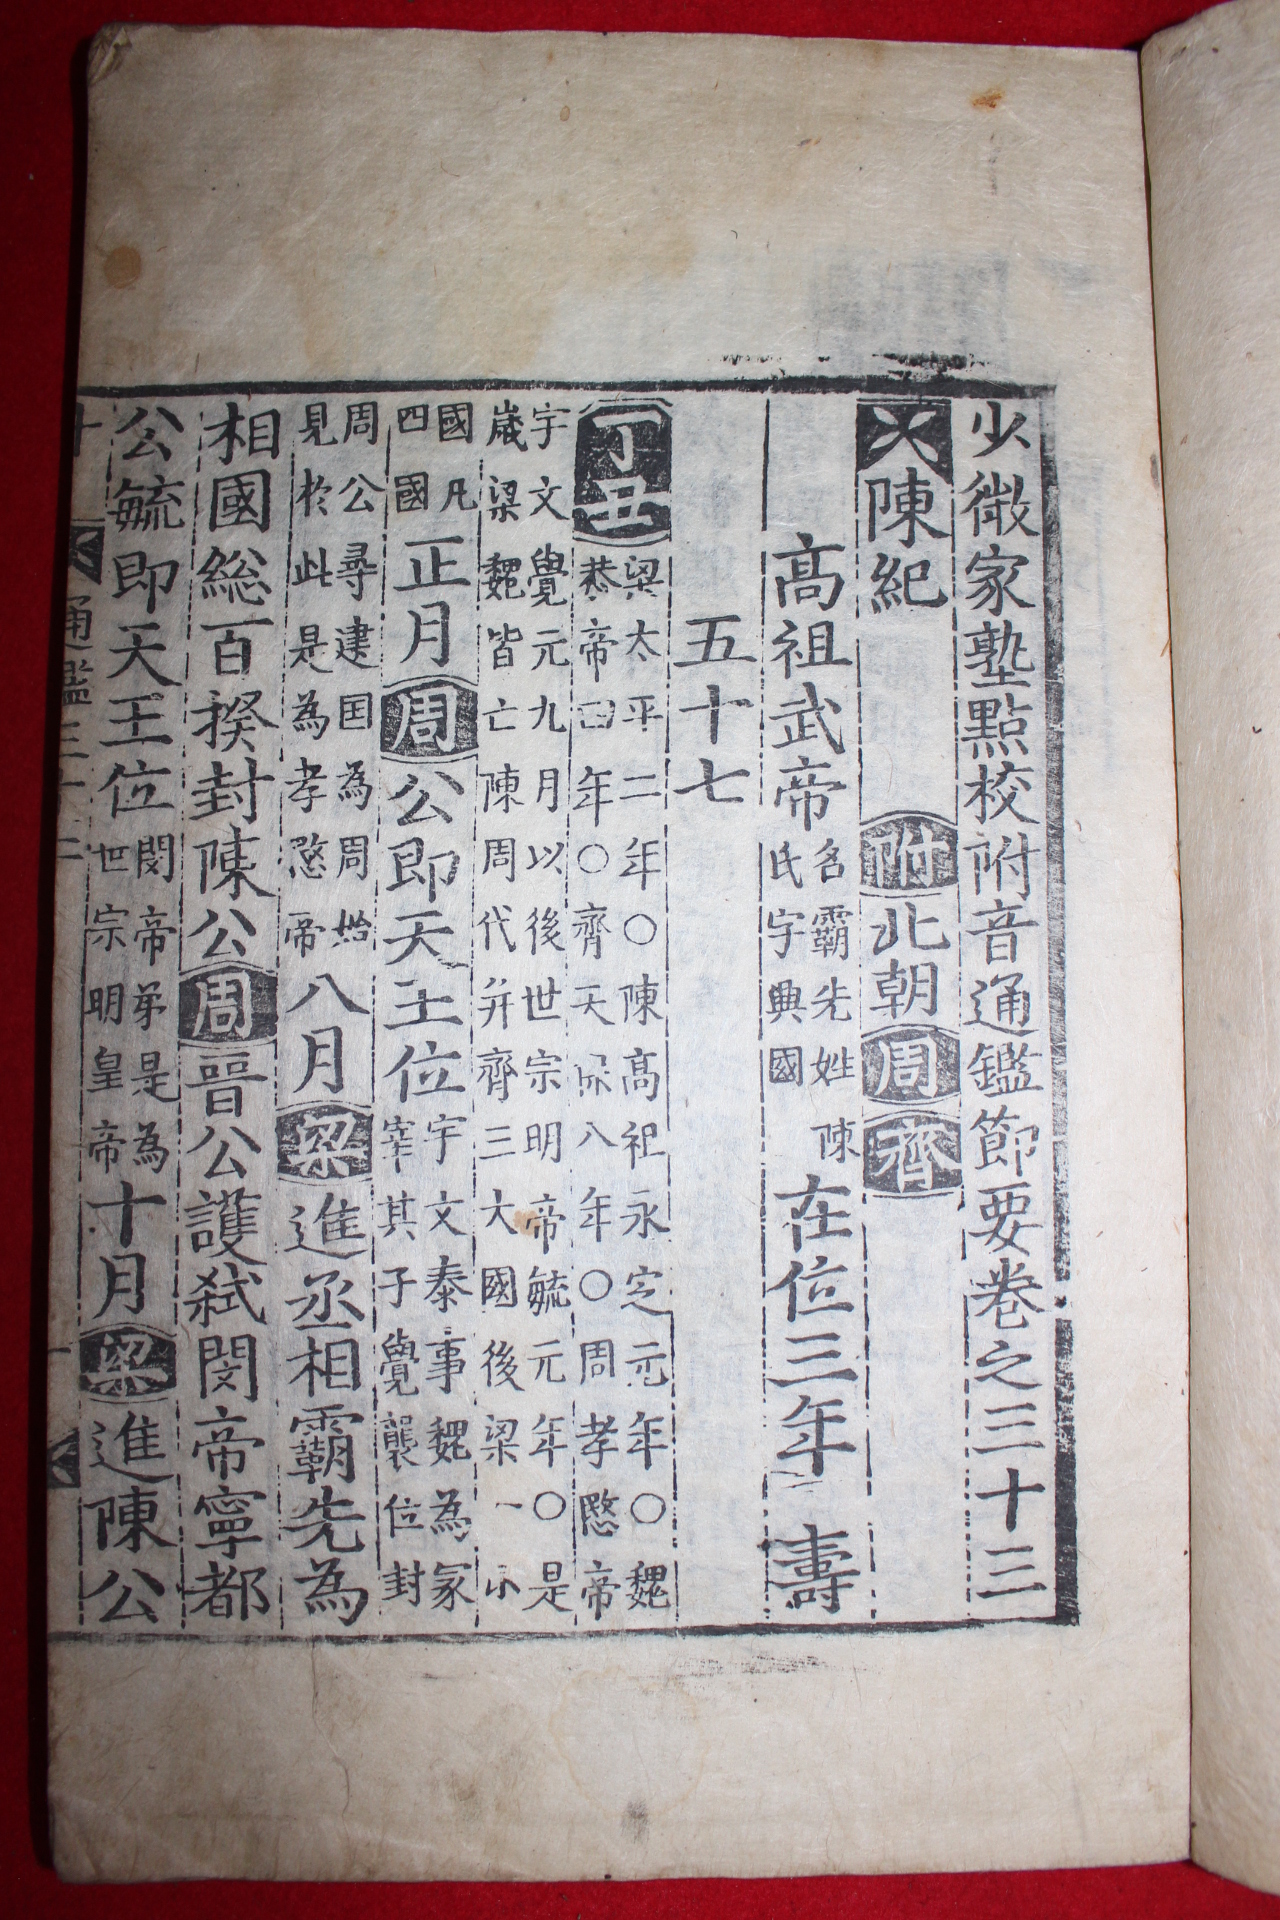 少微家塾點校附音通鑑節要卷之三十三
陳紀　附北朝周齊
高祖武帝名霸先姓陳氏字興國在位三年　壽
五十七
丁丑梁太平二年○陳高祖永定元年○魏恭帝四年○齊天保八年○周孝愍帝
宇文覺元九月以後世宗明帝毓元年○是歲梁魏皆亡陳周代并齊三大國後梁一小
國凡四國正月周公即天王位宇文泰事魏為冢宰其子覺襲位封
周公尋建囯為周始見於此是為孝愍帝八月梁進丞相霸先為
相國総百揆封陳公周晉公護弑閔帝寧都
公毓即天王位閔帝弟是為世宗明皇帝十月梁進陳公
通鑑三十